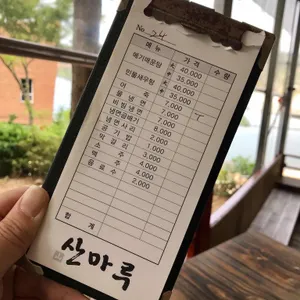 No 24
메 뉴 가 격 수 량
메기매운탕 大 40,000
小 35,000
민물새우탕 大 40,000
小 35,000
어 죽 7,000
물 냉 면 7,000
비 빔 냉 면 7,000
냉면곱빼기 8,000
냉 면 사 리 2,000
공 기 밥 1,000
막 걸 리 3,000
소 주 4,000
맥 주 4,000
음 료 수 2,000
합 계
산마루